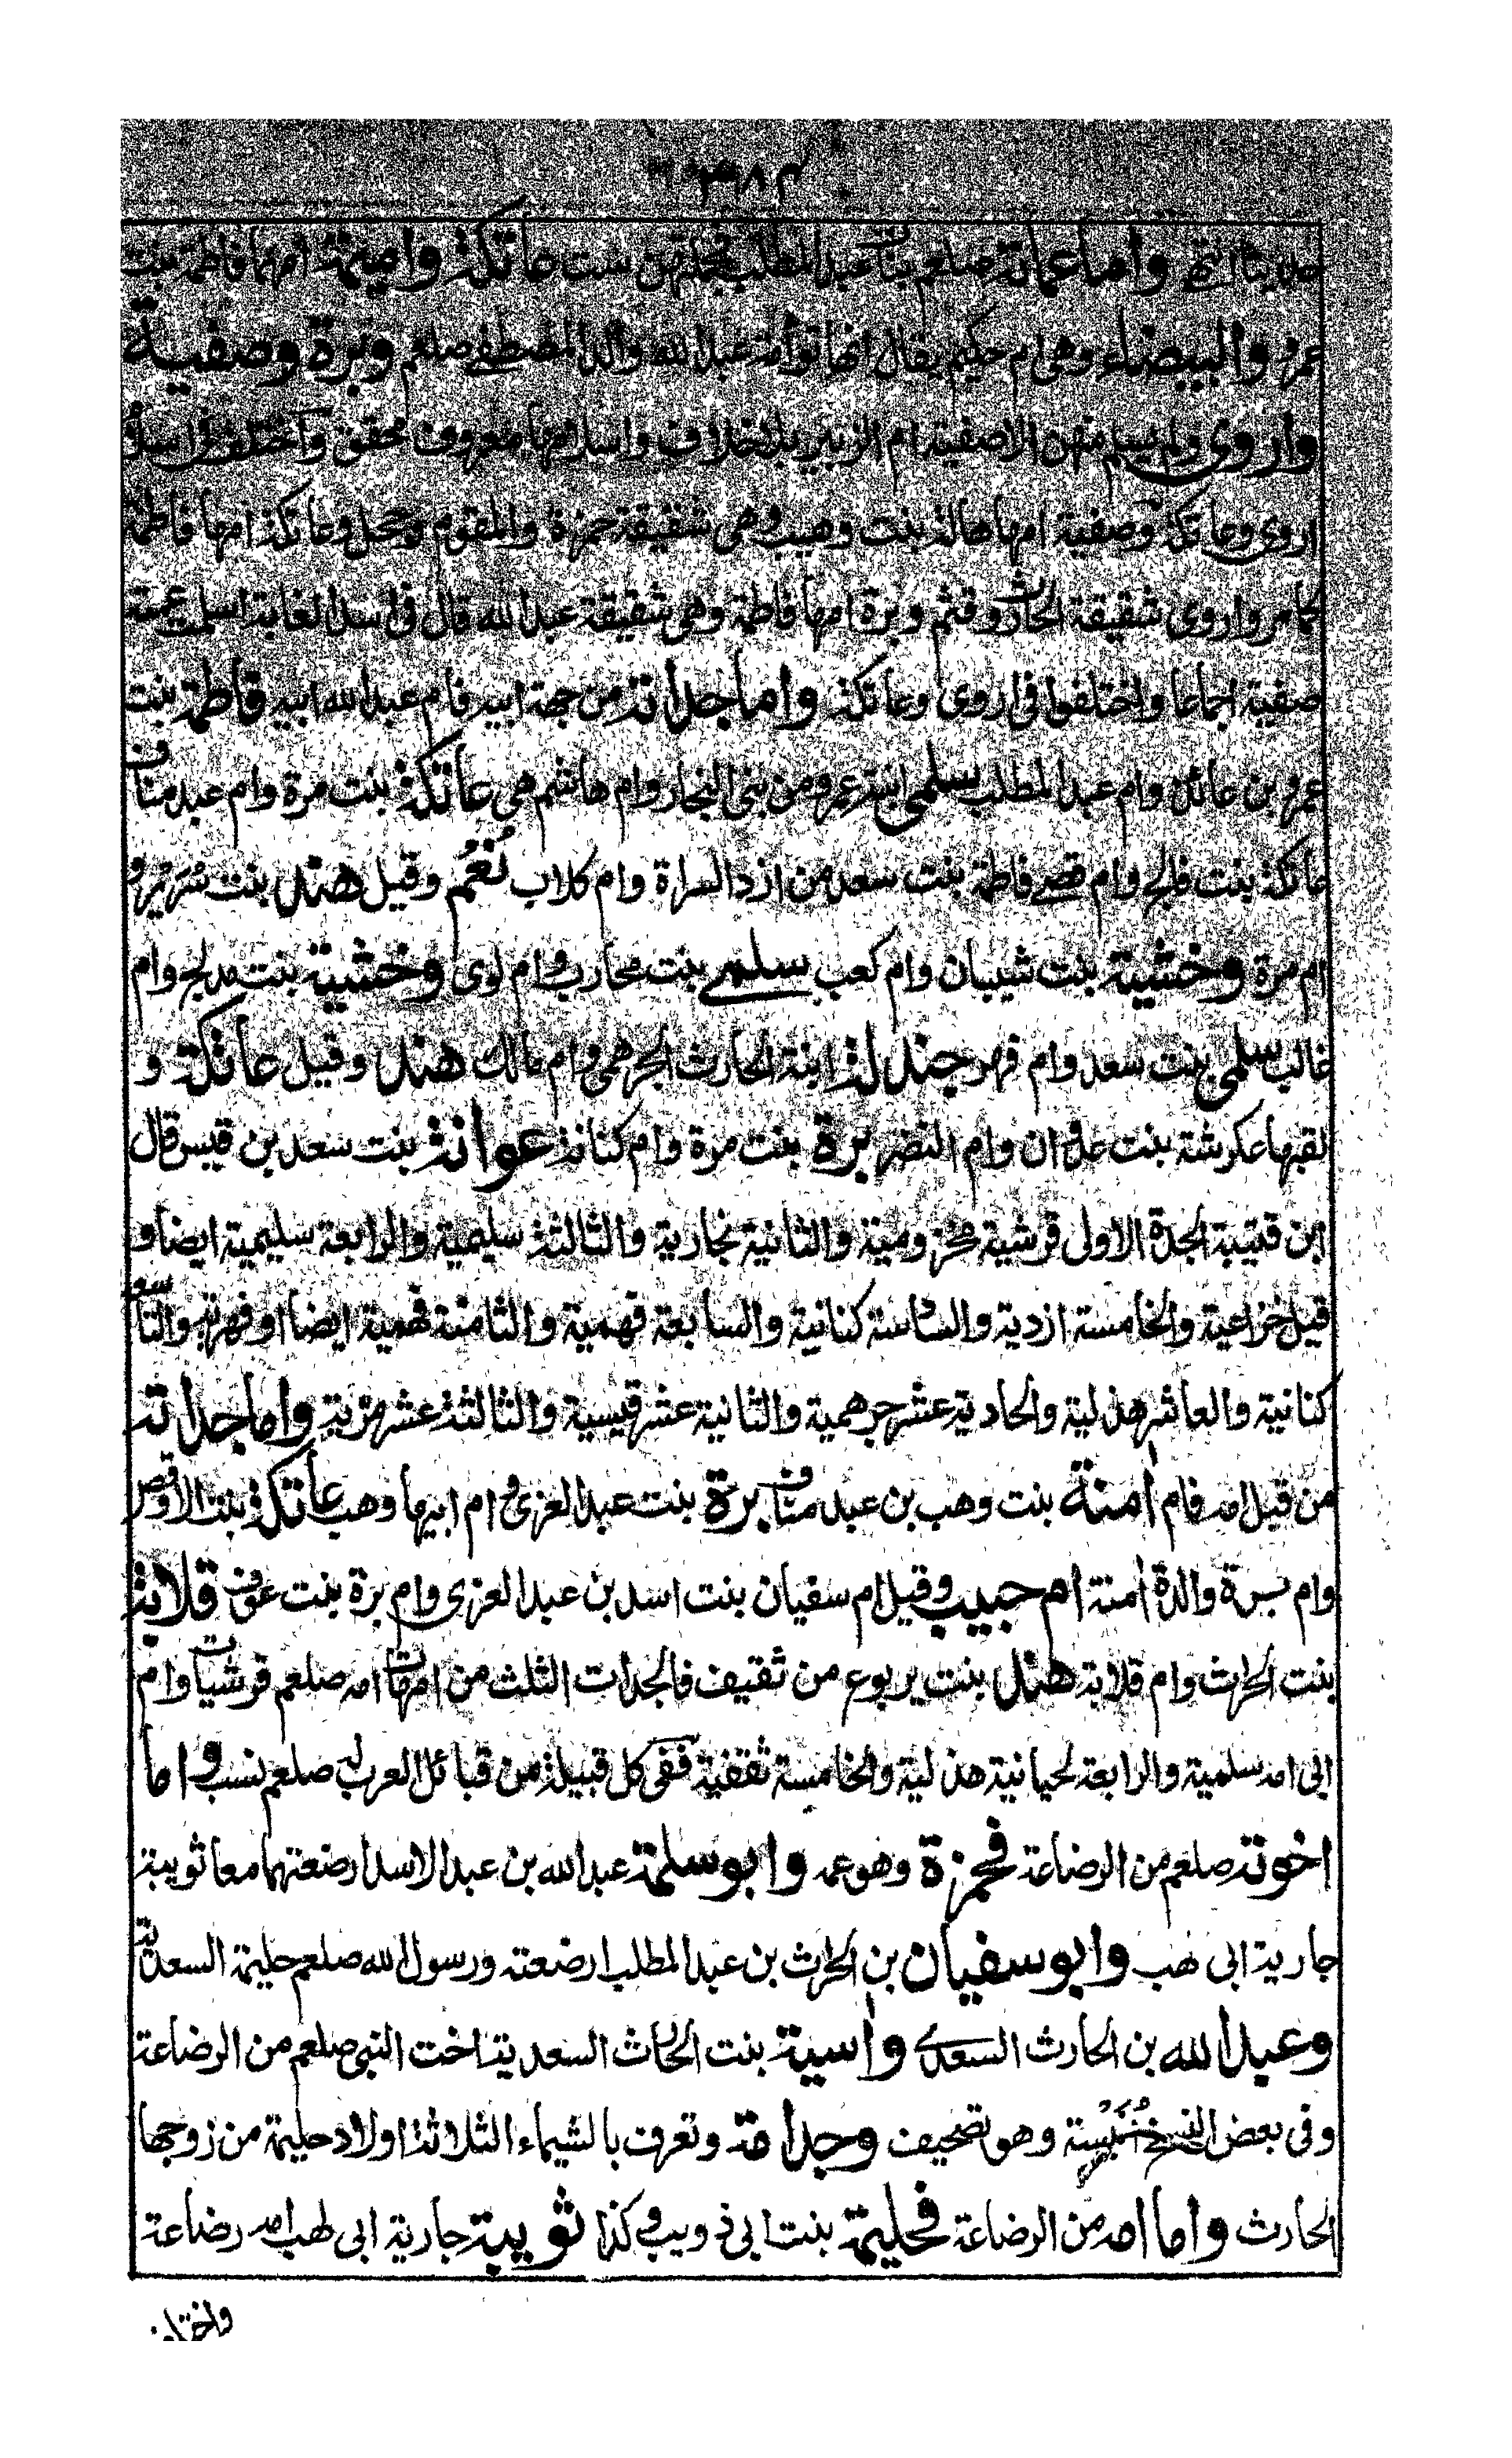 حديثا انتهى واما عماته صلعم بنات عبد المطلب فجملتهن ست عاتكة واميمة امهما فاطمة بنت
عمرو والبيضاء وهى ام حكيم يقال انها توأمة عبد الله والد المصطفے صلعم وبرة وصفية
واروى ولم يسلم منهن الا صفية ام الزبير بلا خلاف واسلامها معروف محقق واختلف فى اسلام
اروى وعاتكة وصفية امها هالة بنت وهيب وهى شقيقة حمزة والمقوم وحجل وعاتكة امها فاطمة
كما مر واروى شقيقة الحارث وقثم وبرة امها فاطمة وهى شقيقة عبد الله قال فى اسد الغابة اسلمت عمته
صفية اجماعا واختلفوا فى اروى وعاتكة واما جداته من جهة ابيه فام عبد الله ابيه فاطمة بنت
عمرو بن عائذ وام عبد المطلب سلمى ابنة عمرو من بنى النجار وام هاشم هى عاتكة بنت مرة وام عبد مناف
عاتكة بنت فالج وام قصے فاطمة بنت سعد من ازد السراة وام كلاب نُعُم وقيل هند بنت سُرَيْر و
ام مرة وخشية بنت شيبان وام كعب سلمے بنت محارب وام لوى وخشية بنت مدلج وام
غالب سلمى بنت سعد وام فهر جندلة ابنة الحارث الجرهمى وام مالك هند وقيل عاتكة و
لقبها عكرشة بنت عدوان وام النضر برة بنت مرة وام كنانة عوانة بنت سعد بن قيس قال
ابن قتيبة الجدة الاولى قرشية مخزومية والثانية نجارية والثالثة سليمية والرابعة سليمية ايضا و
قيل خزاعية والخامسة ازدية والسادسة كنانية والسابعة فهمية والثامنة فهمية ايضا او فهرية والتاسعة
كنانية والعاشر هذلية والحادية عشر جرهمية والثانية عشر قيسية والثالثة عشر مزية واما جداته
من قبل امه فام اٰمنة بنت وهب بن عبد مناف برة بنت عبد العزى و ام ابيها وهب عاتكة بنت الاوقص
وام برة والدة اٰمنة ام حبيب وقيل ام سفيان بنت اسد بن عبد العزى وام برة بنت عوف قلابة
بنت الحرث وام قلابة هند بنت يربوع من ثقيف فالجدات الثلث من امهات امه صلعم قرشيات وام
ابى امه سلمية والرابعة لحيانية هذلية والخامسة ثقفية ففى كل قبيلة من قبائل العرب له صلعم نسب واما
اخوته صلعم من الرضاعة فحمزة وهو عمه وابو سلمة عبد الله بن عبد الاسد ارضعتهما معا ثويبة
جارية ابى لهب وابو سفيان بن الحرث بن عبد المطلب ارضعته ورسول الله صلعم حليمة السعدية
وعبد الله بن الحارث السعدے واٰسية بنت الحارث السعدية اخت النبى صلعم من الرضاعة
وفى بعض النسخ وهو تصحيف وجدامة وتعرف بالشيماء الثلاثة اولاد حليمة من زوجها
الحارث واما امه من الرضاعة فحليمة بنت ابى ذويب وكذا ثويبة جارية ابى لهب امه رضاعة